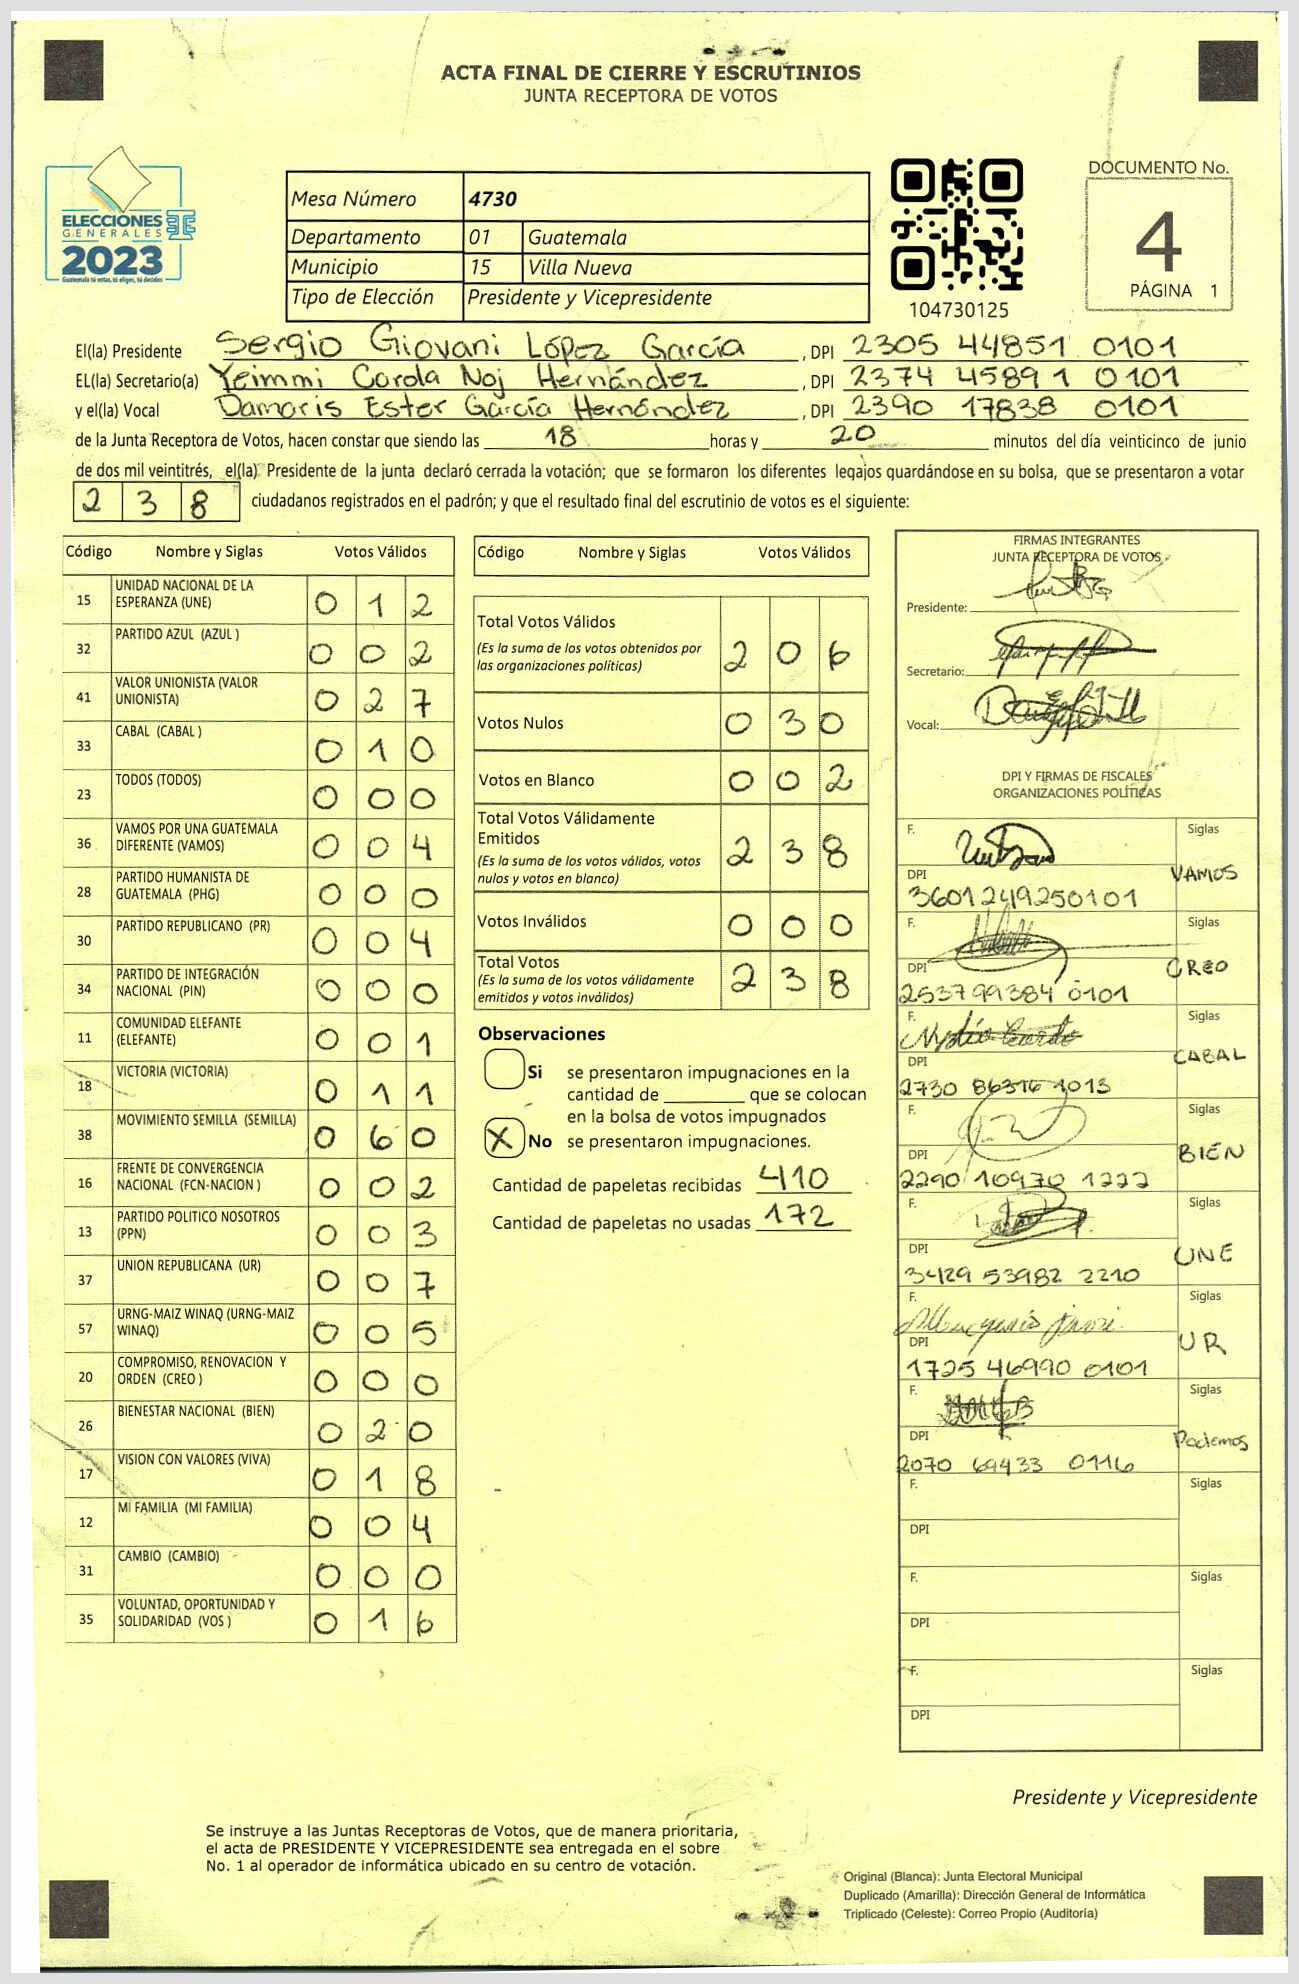 ACTA FINAL DE CIERRE Y ESCRUTINIOS
JUNTA RECEPTORA DE VOTOS
ELECCIONES
GENERALES
2023
Guatemala tú votas, tú eliges, tú decides
Mesa Número 4730
Departamento 01 Guatemala
Municipio 15 Villa Nueva
Tipo de Elección Presidente y Vicepresidente
104730125
DOCUMENTO No.
4
PÁGINA 1
El(la) Presidente Sergio Giovani López García , DPI 2305 44851 0101
EL(la) Secretario(a) Yeimmi Carola Noj Hernández , DPI 2374 45891 0101
y el(la) Vocal Damaris Ester García Hernández , DPI 2390 17838 0101
de la Junta Receptora de Votos, hacen constar que siendo las 18 horas y 20 minutos del día veinticinco de junio
de dos mil veintitrés, el(la) Presidente de la junta declaró cerrada la votación; que se formaron los diferentes legajos guardándose en su bolsa, que se presentaron a votar
238 ciudadanos registrados en el padrón; y que el resultado final del escrutinio de votos es el siguiente:
Código Nombre y Siglas Votos Válidos
15 UNIDAD NACIONAL DE LA ESPERANZA (UNE) 012
32 PARTIDO AZUL (AZUL ) 002
41 VALOR UNIONISTA (VALOR UNIONISTA) 027
33 CABAL (CABAL ) 010
23 TODOS (TODOS) 000
36 VAMOS POR UNA GUATEMALA DIFERENTE (VAMOS) 004
28 PARTIDO HUMANISTA DE GUATEMALA (PHG) 000
30 PARTIDO REPUBLICANO (PR) 004
34 PARTIDO DE INTEGRACIÓN NACIONAL (PIN) 000
11 COMUNIDAD ELEFANTE (ELEFANTE) 001
18 VICTORIA (VICTORIA) 011
38 MOVIMIENTO SEMILLA (SEMILLA) 060
16 FRENTE DE CONVERGENCIA NACIONAL (FCN-NACION ) 002
13 PARTIDO POLITICO NOSOTROS (PPN) 003
37 UNION REPUBLICANA (UR) 007
57 URNG-MAIZ WINAQ (URNG-MAIZ WINAQ) 005
20 COMPROMISO, RENOVACION Y ORDEN (CREO ) 000
26 BIENESTAR NACIONAL (BIEN) 020
17 VISION CON VALORES (VIVA) 018
12 MI FAMILIA (MI FAMILIA) 004
31 CAMBIO (CAMBIO) 000
35 VOLUNTAD, OPORTUNIDAD Y SOLIDARIDAD (VOS ) 016
Código Nombre y Siglas Votos Válidos
Total Votos Válidos
(Es la suma de los votos obtenidos por las organizaciones políticas) 206
Votos Nulos 030
Votos en Blanco 002
Total Votos Válidamente Emitidos
(Es la suma de los votos válidos, votos nulos y votos en blanco) 238
Votos Inválidos 000
Total Votos
(Es la suma de los votos válidamente emitidos y votos inválidos) 238
Observaciones
Si se presentaron impugnaciones en la
cantidad de ________ que se colocan
en la bolsa de votos impugnados
X No se presentaron impugnaciones.
Cantidad de papeletas recibidas 410
Cantidad de papeletas no usadas 172
FIRMAS INTEGRANTES
JUNTA RECEPTORA DE VOTOS
Presidente:
Secretario:
Vocal:
DPI Y FIRMAS DE FISCALES
ORGANIZACIONES POLÍTICAS
F. Siglas
DPI VAMOS
3601249250101
F. Siglas
DPI CREO
253799384 0101
F. Siglas
DPI CABAL
2730 86316 1013
F. Siglas
DPI BIEN
2290 10970 1222
F. Siglas
DPI UNE
3429 53982 2210
F. Siglas
DPI UR
1725 46990 0101
F. Siglas
DPI Podemos
2070 69433 0116
F. Siglas
DPI
F. Siglas
DPI
F. Siglas
DPI
Presidente y Vicepresidente
Se instruye a las Juntas Receptoras de Votos, que de manera prioritaria,
el acta de PRESIDENTE Y VICEPRESIDENTE sea entregada en el sobre
No. 1 al operador de informática ubicado en su centro de votación.
Original (Blanca): Junta Electoral Municipal
Duplicado (Amarilla): Dirección General de Informática
Triplicado (Celeste): Correo Propio (Auditoría)